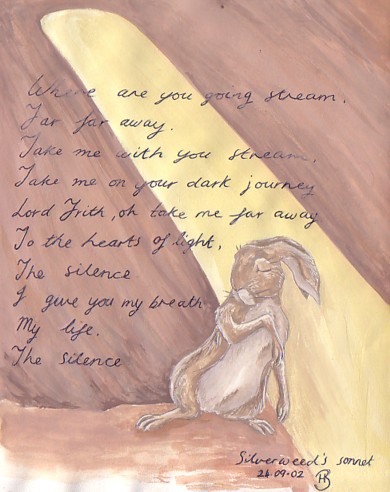 Where are you going stream.
Far far away.
Take me with you stream,
Take me on your dark journey
Lord Frith, oh take me far away
To the hearts of light,
The silence
I give you my breath
My life.
The Silence
Silverweed's sonnet
24.09.02